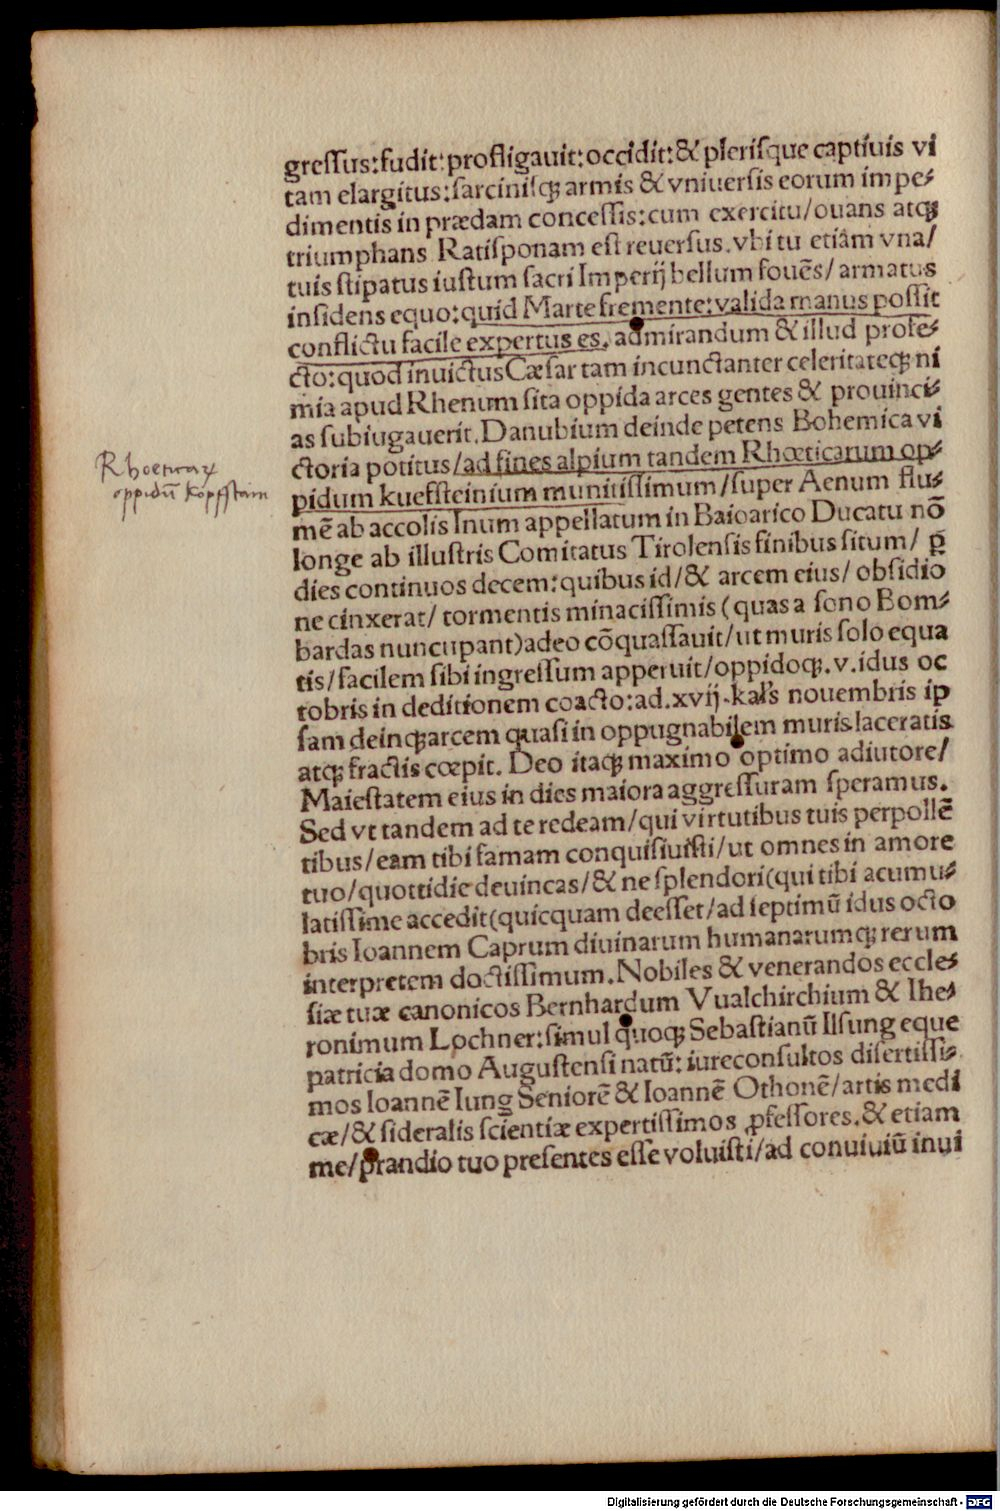 greſſus:fudit:profligauit:occidit:& pleriſque captiuis vi
tam elargitus:ſarciniſqꝫ armis & vniuerſis eorum impe⸗
dimentis in prædam conceſſis:cum exercitu/ouans atqꝫ
triumphans Ratiſponam eſt reuerſus.vbi tu etiam vna/
tuis ſtipatus iuſtum ſacri Imperij bellum fouēs/armatus
inſidens equo:quid Marte fremente:valida manus poſſit
conflictu facile expertus es. admirandum & illud profe⸗
cto:quod inuictus Cæſar tam incunctanter celeritateqꝫ ni
mia apud Rhenum ſita oppida arces gentes & prouinci⸗
as ſubiugauerit.Danubium deinde petens Bohemica vi
ctoria potitus/ad fines alpium tandem Rhœticarum op⸗
Rhoeticarꝝ
oppidū Kopfſtain
pidum kuefſteinium munitiſſimum/ſuper Aenum flu⸗
mē ab accolis Inum appellatum in Baioarico Ducatu nō
longe ab illuſtris Comitatus Tirolenſis finibus ſitum/ ꝑ
dies continuos decem:quibus id/& arcem eius/ obſidio
ne cinxerat/ tormentis minaciſſimis (quas a ſono Bom⸗
bardas nuncupant)adeo cōquaſſauit/ut muris ſolo equa
tis/facilem ſibi ingreſſum apperuit/oppidoqꝫ.v.idus oc
tobris in deditionem coacto:ad.xvij.kal's nouembris ip
ſam deinqꝫ arcem quaſi in oppugnabilem muris laceratis
atqꝫ fractis cœpit. Deo itaqꝫ maximo optimo adiutore/
Maieſtatem eius in dies maiora aggreſſuram ſperamus.
Sed vt tandem ad te redeam/qui virtutibus tuis perpollē
tibus/eam tibi famam conquiſiuiſti/ut omnes in amore
tuo/quottidie deuincas/& ne ſplendori(qui tibi acumu⸗
latiſſime accedit(quicquam deeſſet/ad ſeptimū idus octo
bris Ioannem Caprum diuinarum humanarumqꝫ rerum
interpretem doctiſſimum.Nobiles & venerandos eccle⸗
ſiæ tuæ canonicos Bernhardum Vualchirchium & Ihe⸗
ronimum Lochner:ſimul quoqꝫ Sebaſtianū Ilſung eque
patricia domo Auguſtenſi natū: iureconſultos diſertiſſi⸗
mos Ioannē Iung Seniorē & Ioannē Othonē/artis medi
cæ/& ſideralis ſcientiæ expertiſſimos ꝓfeſſores.& etiam
me/prandio tuo preſentes eſſe voluiſti/ad conuiuiū inui
Digitalisierung gefördert durch die Deutsche Forschungsgemeinschaft - DFG